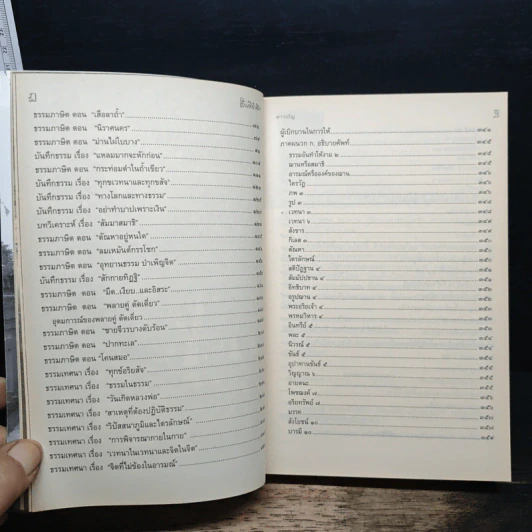 ธรรมภาษิต ตอน "เสือลาถ้ำ"
ธรรมภาษิต ตอน "นิราศนคร"
ธรรมภาษิต ตอน "ม่านไม้ใบบาง"
บันทึกธรรม เรื่อง "แหลมมากจะหักก่อน"
ธรรมภาษิต ตอน "กระท่อมค่าในถ้ำเขียว"
บันทึกธรรม เรื่อง "ทุกขเวทนาและทุกขสัจ"
บันทึกธรรม เรื่อง "ทางโลกและทางธรรม"
บันทึกธรรม เรื่อง "อย่าทำบาปเพราะเงิน"
บทวิเคราะห์ เรื่อง "สัมมาสมาธิ"
ธรรมภาษิต ตอน "ตัณหาอยู่หนใด"
ธรรมภาษิต ตอน "ลมเหมันต์กรรโชก"
ธรรมภาษิต ตอน "อุทยานธรรม บำเพ็ญจิต"
บันทึกธรรม เรื่อง "สักกายทิฏฐิ"
ธรรมภาษิต ตอน "มืด..เงียบ..และอิสระ"
ธรรมภาษิต ตอน "พลายคู่ ตัดเดี่ยว"
อุดมการณ์ของพลายคู่ ตัดเดี่ยว
ธรรมภาษิต ตอน "ชายจีวรบางดับร้อน"
ธรรมภาษิต ตอน "ปากทะเล"
ธรรมภาษิต ตอน "โคนสมอ"
ธรรมเทศนา เรื่อง "ทุกข์อริยสัจ"
ธรรมเทศนา เรื่อง "ธรรมในธรรม"
ธรรมเทศนา เรื่อง "วันเกิดหลวงพ่อ"
ธรรมเทศนา เรื่อง "สาเหตุที่ต้องปฏิบัติธรรม"
ธรรมเทศนา เรื่อง "วิปัสสนาภูมิและไตรลักษณ์"
ธรรมเทศนา เรื่อง "การพิจารณากายในกาย"
ธรรมเทศนา เรื่อง "เวทนาในเวทนาและจิตในจิต"
ธรรมเทศนา เรื่อง "จิตที่ไม่ข้องในอารมณ์"
สารบัญ
ผู้เบิกบานในการให้ ๓๔๑
ภาคผนวก ก. อธิบายศัพท์ ๓๔๕
ธรรมอันทำให้งาม ๒ ๓๔๕
ฌานหรือสมาธิ ๓๔๕
อารมณ์หรือองค์ของฌาน ๓๔๖
ไตรวัฏ ๓๔๖
ภพ ๓ ๓๔๖
รูป ๓ ๓๔๘
เวทนา ๓ ๓๔๘
เวทนา ๖ ๓๔๘
สังขาร ๓๔๙
กิเลส ๓ ๓๕๐
ตัณหา ๓๕๐
ไตรลักษณ์ ๓๕๐
สติปัฏฐาน ๔ ๓๕๑
สัมมัปปธาน ๔ ๓๕๑
อิทธิบาท ๔ ๓๕๑
อรูปฌาน ๔
พระอริยเจ้า ๔
พรหมวิหาร ๔
อินทรีย์ ๕
พละ ๕
นิวรณ์ ๕
ขันธ์ ๕
อุปาทานขันธ์ ๕
วิญญาณ ๖
อายตนะ
โพชฌงค์ ๗
อริยทรัพย์ ๗
มรรค
สังโยชน์ ๑๐
บารมี ๑๐